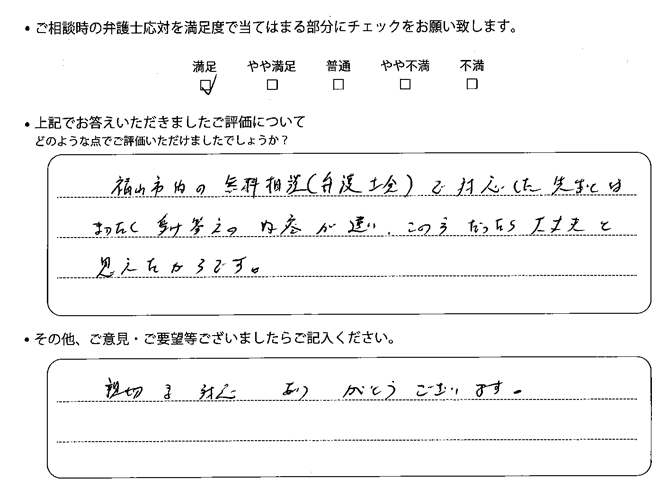 • ご相談時の弁護士応対を満足度で当てはまる部分にチェックをお願い致します。
満足 やや満足 普通 やや不満 不満
• 上記でお答えいただきましたご評価について
どのような点でご評価いただけましたでしょうか？
福山市内の無料相談(弁護士会)で対応した先生とは
まったく受け答えの内容が違い、この方だったら大丈夫と
思えたからです。
• その他、ご意見・ご要望等ございましたらご記入ください。
親切な対応 ありがとうございます。